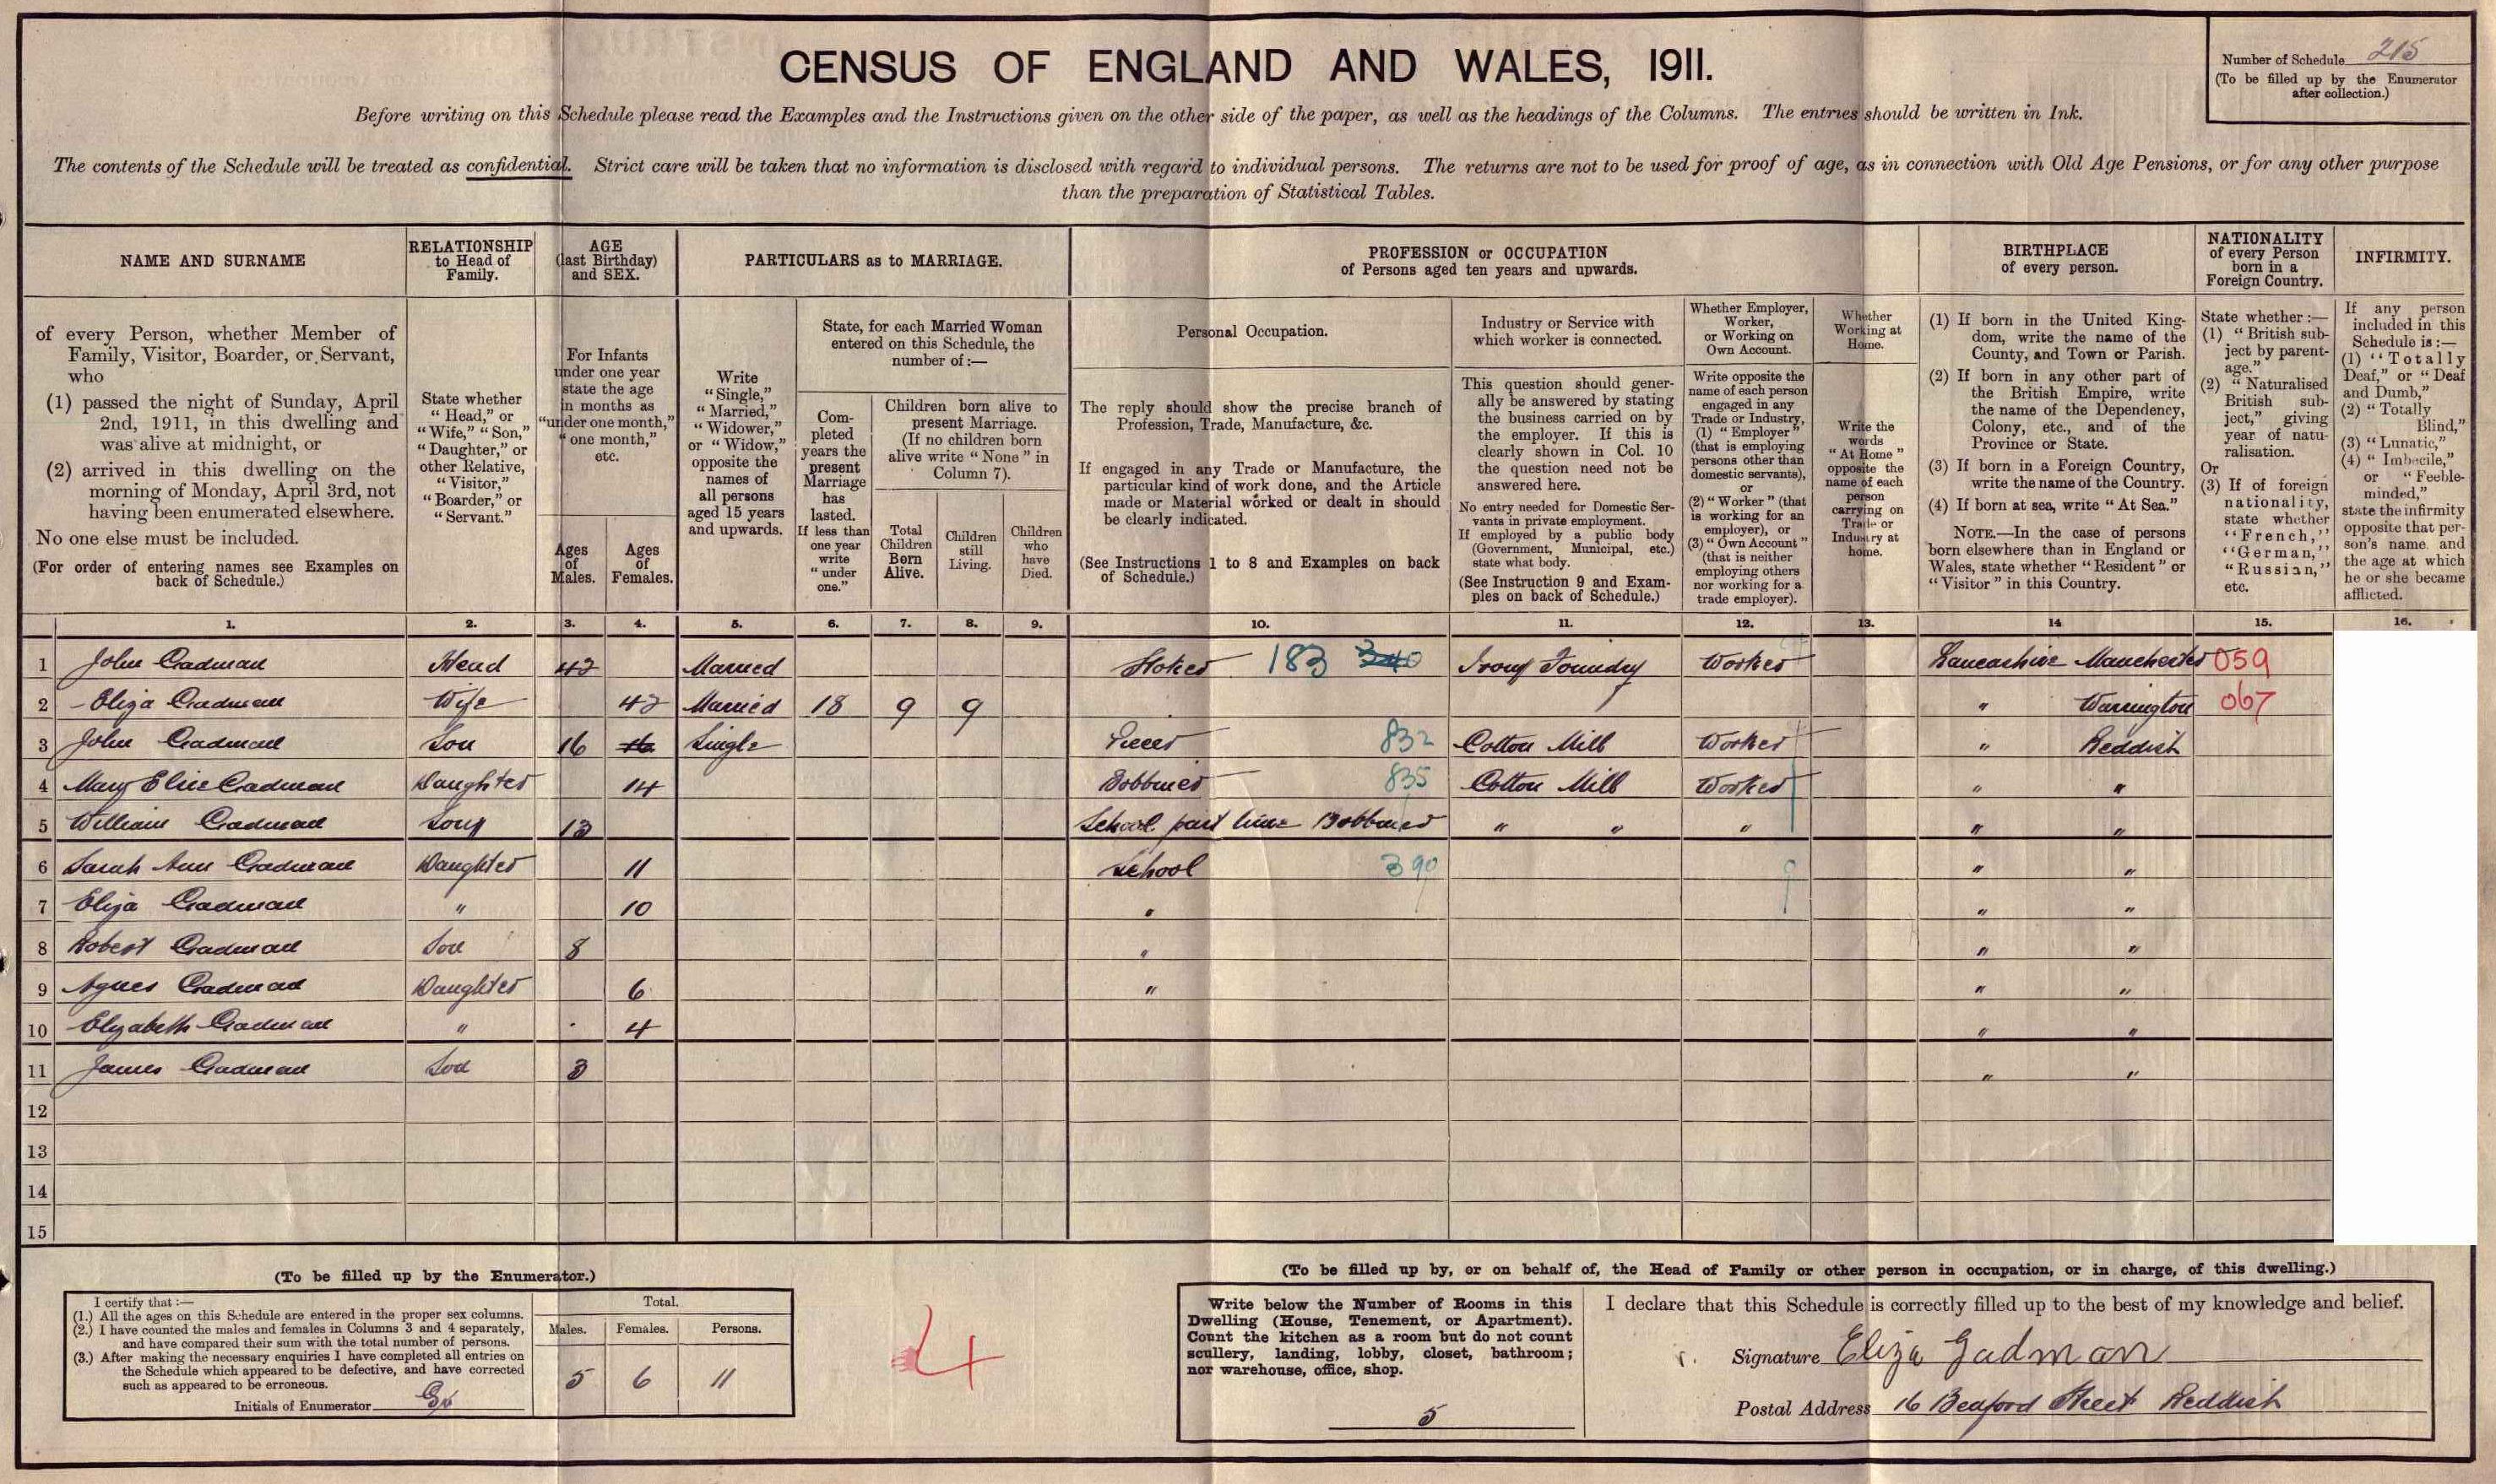 CENSUS OF ENGLAND AND WALES, 1911.
Number of Schedule 215
(To be filled up by the Enumerator
after collection.)
Before writing on this Schedule please read the Examples and the Instructions given on the other side of the paper, as well as the headings of the Columns. The entries should be written in Ink.
The contents of the Schedule will be treated as confidential. Strict care will be taken that no information is disclosed with regard to individual persons. The returns are not to be used for proof of age, as in connection with Old Age Pensions, or for any other purpose
than the preparation of Statistical Tables.
NAME AND SURNAME
RELATIONSHIP
to Head of
Family.
AGE
(last Birthday)
and SEX.
PARTICULARS as to MARRIAGE.
PROFESSION or OCCUPATION
of Persons aged ten years and upwards.
BIRTHPLACE
of every person.
NATIONALITY
of every Person
born in a
Foreign Country.
INFIRMITY.
of every Person, whether Member of
Family, Visitor, Boarder, or Servant,
who
(1) passed the night of Sunday, April
2nd, 1911, in this dwelling and
was alive at midnight, or
(2) arrived in this dwelling on the
morning of Monday, April 3rd, not
having been enumerated elsewhere.
No one else must be included.
(For order of entering names see Examples on
back of Schedule.)
State whether
"Head," or
"Wife," "Son,"
"Daughter," or
other Relative,
"Visitor,"
"Boarder," or
"Servant."
For Infants
under one year
state the age
in months as
"under one month,"
"one month,"
etc.
Ages
of
Males.
Ages
of
Females.
Write
"Single,"
"Married,"
"Widower,"
or "Widow,"
opposite the
names of
all persons
aged 15 years
and upwards.
State, for each Married Woman
entered on this Schedule, the
number of:—
Com-
pleted
years the
present
Marriage
has
lasted.
If less than
one year
write
"under
one."
Children born alive to
present Marriage.
(If no children born
alive write "None" in
Column 7).
Total
Children
Born
Alive.
Children
still
Living.
Children
who
have
Died.
Personal Occupation.
The reply should show the precise branch of
Profession, Trade, Manufacture, &c.
If engaged in any Trade or Manufacture, the
particular kind of work done, and the Article
made or Material worked or dealt in should
be clearly indicated.
(See Instructions 1 to 8 and Examples on back
of Schedule.)
Industry or Service with
which worker is connected.
This question should gener-
ally be answered by stating
the business carried on by
the employer. If this is
clearly shown in Col. 10
the question need not be
answered here.
No entry needed for Domestic Ser-
vants in private employment.
If employed by a public body
(Government, Municipal, etc.)
state what body.
(See Instruction 9 and Exam-
ples on back of Schedule.)
Whether Employer,
Worker,
or Working on
Own Account.
Write opposite the
name of each person
engaged in any
Trade or Industry,
(1) "Employer"
(that is employing
persons other than
domestic servants),
or
(2) "Worker" (that
is working for an
employer), or
(3) "Own Account"
(that is neither
employing others
nor working for a
trade employer).
Whether
Working at
Home.
Write the
words
"At Home"
opposite the
name of each
person
carrying on
Trade or
Industry at
home.
(1) If born in the United King-
dom, write the name of the
County, and Town or Parish.
(2) If born in any other part of
the British Empire, write
the name of the Dependency,
Colony, etc., and of the
Province or State.
(3) If born in a Foreign Country,
write the name of the Country.
(4) If born at sea, write "At Sea."
NOTE.—In the case of persons
born elsewhere than in England or
Wales, state whether "Resident" or
"Visitor" in this Country.
State whether:—
(1) "British sub-
ject by parent-
age."
(2) "Naturalised
British sub-
ject," giving
year of natu-
ralisation.
Or
(3) If of foreign
nationality,
state whether
"French,"
"German,"
"Russian,"
etc.
If any person
included in this
Schedule is:—
(1) "Totally
Deaf," or "Deaf
and Dumb,"
(2) "Totally
Blind,"
(3) "Lunatic,"
(4) "Imbecile,"
or "Feeble-
minded,"
state the infirmity
opposite that per-
son's name and
the age at which
he or she became
afflicted.
1. 2. 3. 4. 5. 6. 7. 8. 9. 10. 11. 12. 13. 14 15. 16.
1 John Cadman Head 42 Married Stoker 183 340 Irony Foundry Worker Lancashire Manchester 059
2 Eliza Cadman Wife 42 Married 18 9 9 " Warrington 067
3 John Cadman Son 16 16 Single Piecer 832 Cotton Mill Worker " Reddish
4 Mary Elise Cadman Daughter 14 Bobbiner 835 Cotton Mill Worker " "
5 William Cadman Son 13 School part time Bobbiner " " " " "
6 Sarah Ann Cadman Daughter 11 School 390 " "
7 Eliza Cadman " 10 " " "
8 Robert Cadman Son 8 " " "
9 Agnes Cadman Daughter 6 " " "
10 Elizabeth Cadman " 4 " "
11 James Cadman Son 3 " "
12
13
14
15
(To be filled up by the Enumerator.)
I certify that:—
(1.) All the ages on this Schedule are entered in the proper sex columns.
(2.) I have counted the males and females in Columns 3 and 4 separately,
and have compared their sum with the total number of persons.
(3.) After making the necessary enquiries I have completed all entries on
the Schedule which appeared to be defective, and have corrected
such as appeared to be erroneous.
Initials of Enumerator
Total.
Males. Females. Persons.
5 6 11
4
(To be filled up by, or on behalf of, the Head of Family or other person in occupation, or in charge, of this dwelling.)
Write below the Number of Rooms in this
Dwelling (House, Tenement, or Apartment).
Count the kitchen as a room but do not count
scullery, landing, lobby, closet, bathroom;
nor warehouse, office, shop.
5
I declare that this Schedule is correctly filled up to the best of my knowledge and belief.
Signature Eliza Gadman
Postal Address 16 Bedford Street Reddish